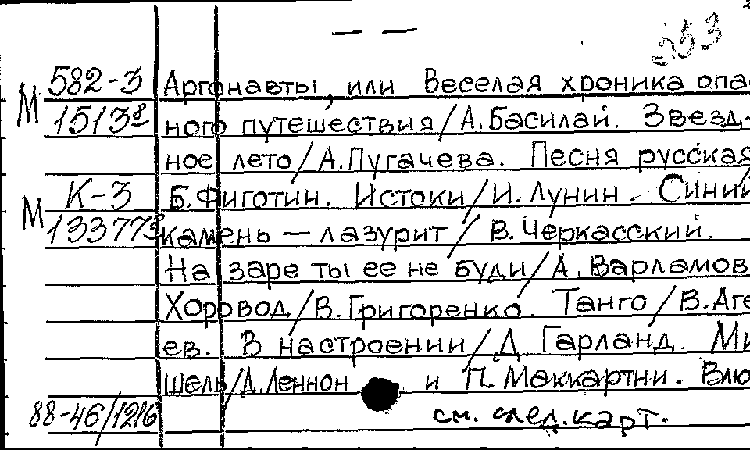 — —
353
М 582-3 Аргонавты, или Веселая хроника опас
1513 ного путешествия/А.Басилай. Звезд-
ное лето/А.Пугачева. Песня русская
М К-3 Б.Фиготин. Истоки/И.Лунин. Синий
133773 камень — лазурит/В.Черкасский.
На заре ты ее не буди/А.Варламов
Хоровод/В.Григоренко. Танго/В.Аге
ев. В настроении/Д Гарланд. Ми
шель/Д.Леннон и П.Маккартни. Влю
88-46/1216 см. след.карт.